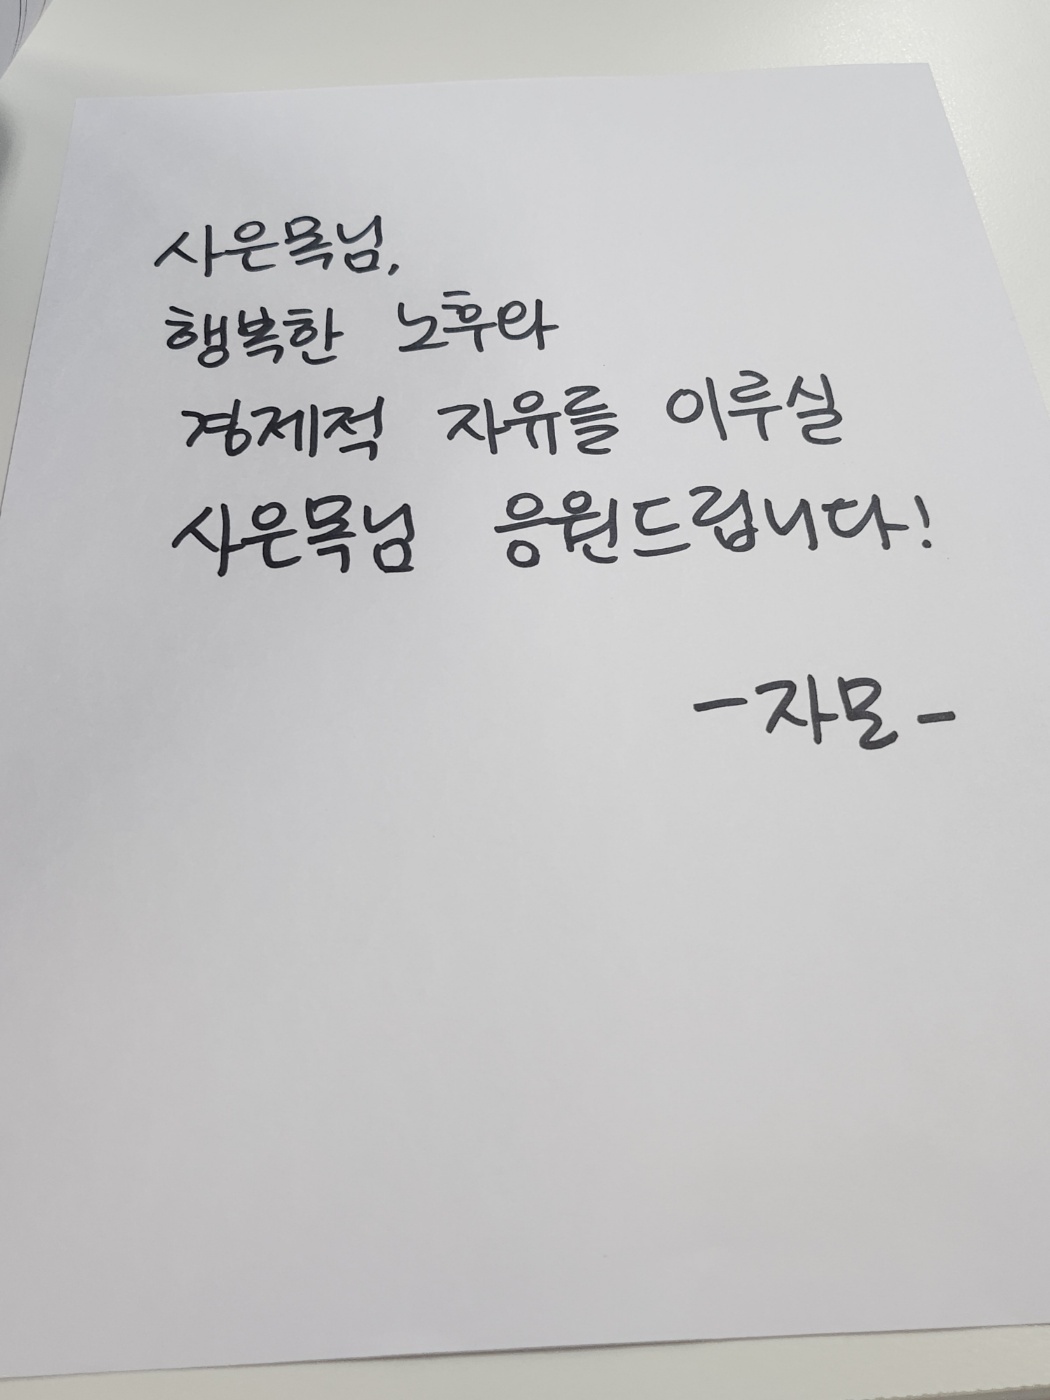 사은목님,
행복한 노후와
경제적 자유를 이루실
사은목님 응원드립니다!
-자모-